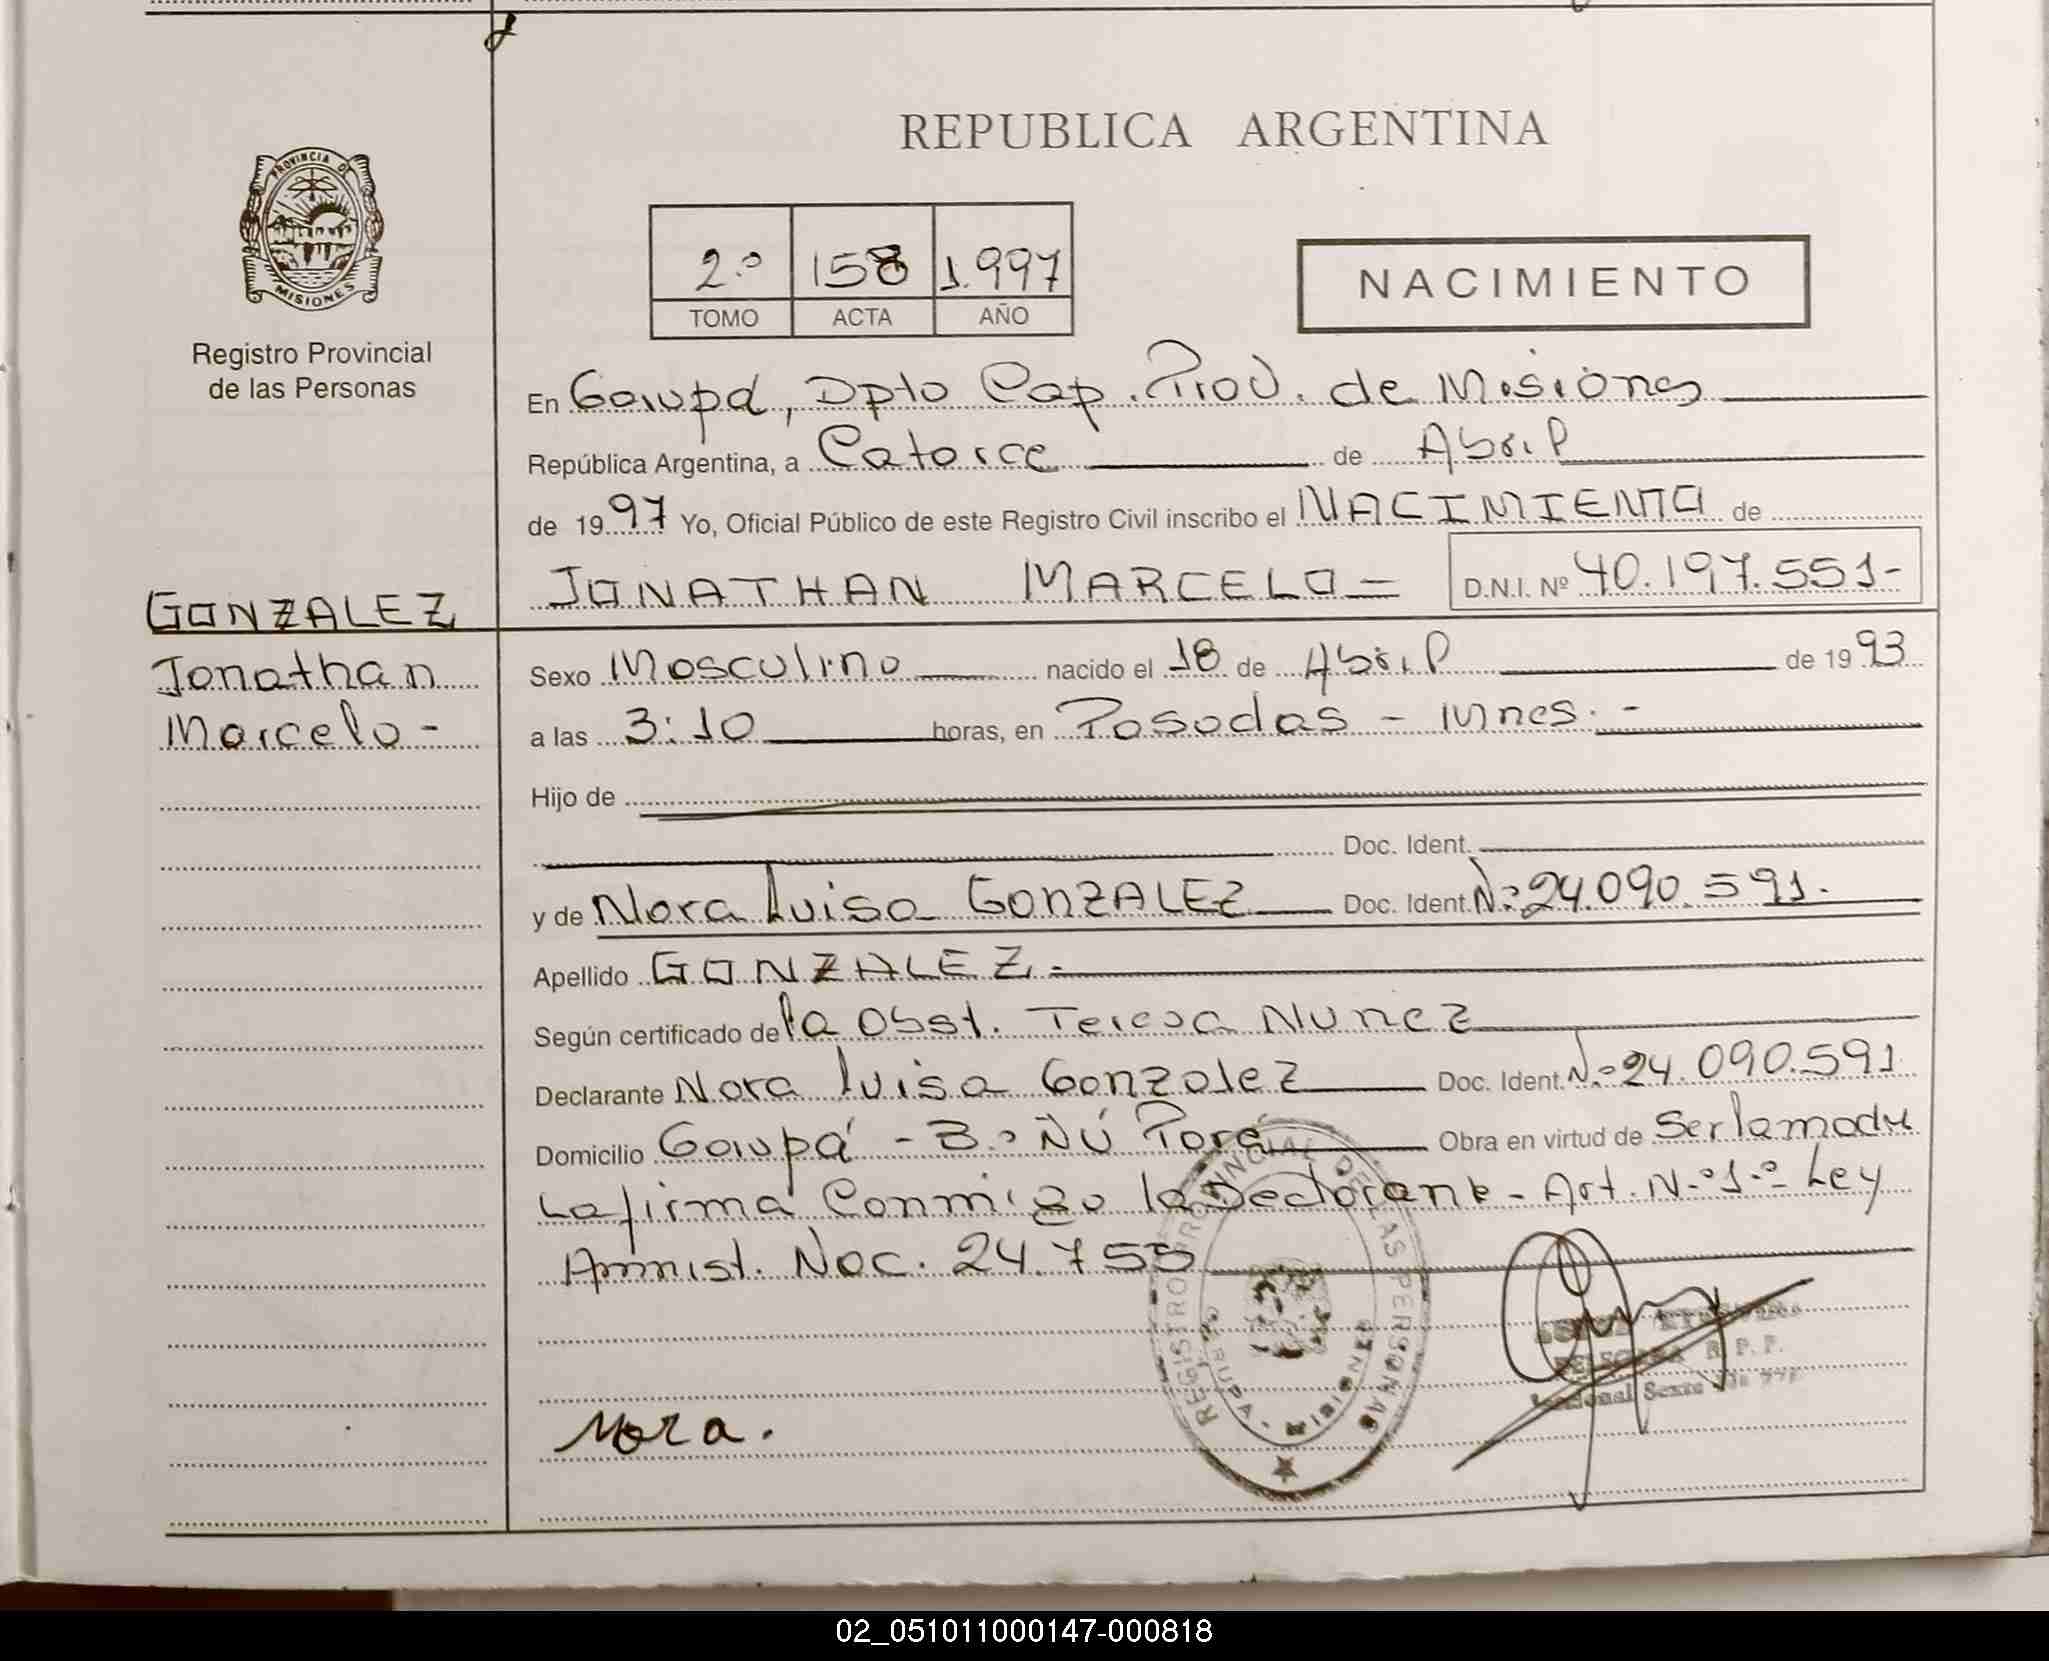 REPUBLICA ARGENTINA
PROVINCIA DE
MISIONES
Registro Provincial
de las Personas
2.º 158 1.997
TOMO ACTA AÑO
NACIMIENTO
En Garupá, Dpto Cap. Prov. de Misiones
República Argentina, a Catorce de Abril
de 1997 Yo, Oficial Público de este Registro Civil inscribo el NACIMIENTO de
JONATHAN MARCELO= D.N.I. Nº 40.197.551-
GONZALEZ
Jonathan
Marcelo-
Sexo Masculino nacido el 18 de Abril de 1993
a las 3:10 horas, en Posadas - Mnes. -
Hijo de
Doc. Ident.
y de Nora Luisa GONZALEZ Doc. Ident. Nº 24.090.591.
Apellido GONZALEZ.-
Según certificado de la Obst. Teresa Nunez
Declarante Nora Luisa Gonzalez Doc. Ident. Nº 24.090.591
Domicilio Garupá - Bº Ñú Porá Obra en virtud de Ser la madre
La firma Conmigo la Declarante - Art. Nº 1º Ley
Amnist. Nac. 24.755
REGISTRO PROVINCIAL DE LAS PERSONAS
Nora.
02_051011000147-000818